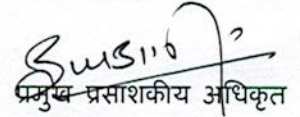 प्रमुख प्रसाशकीय अधिकृत